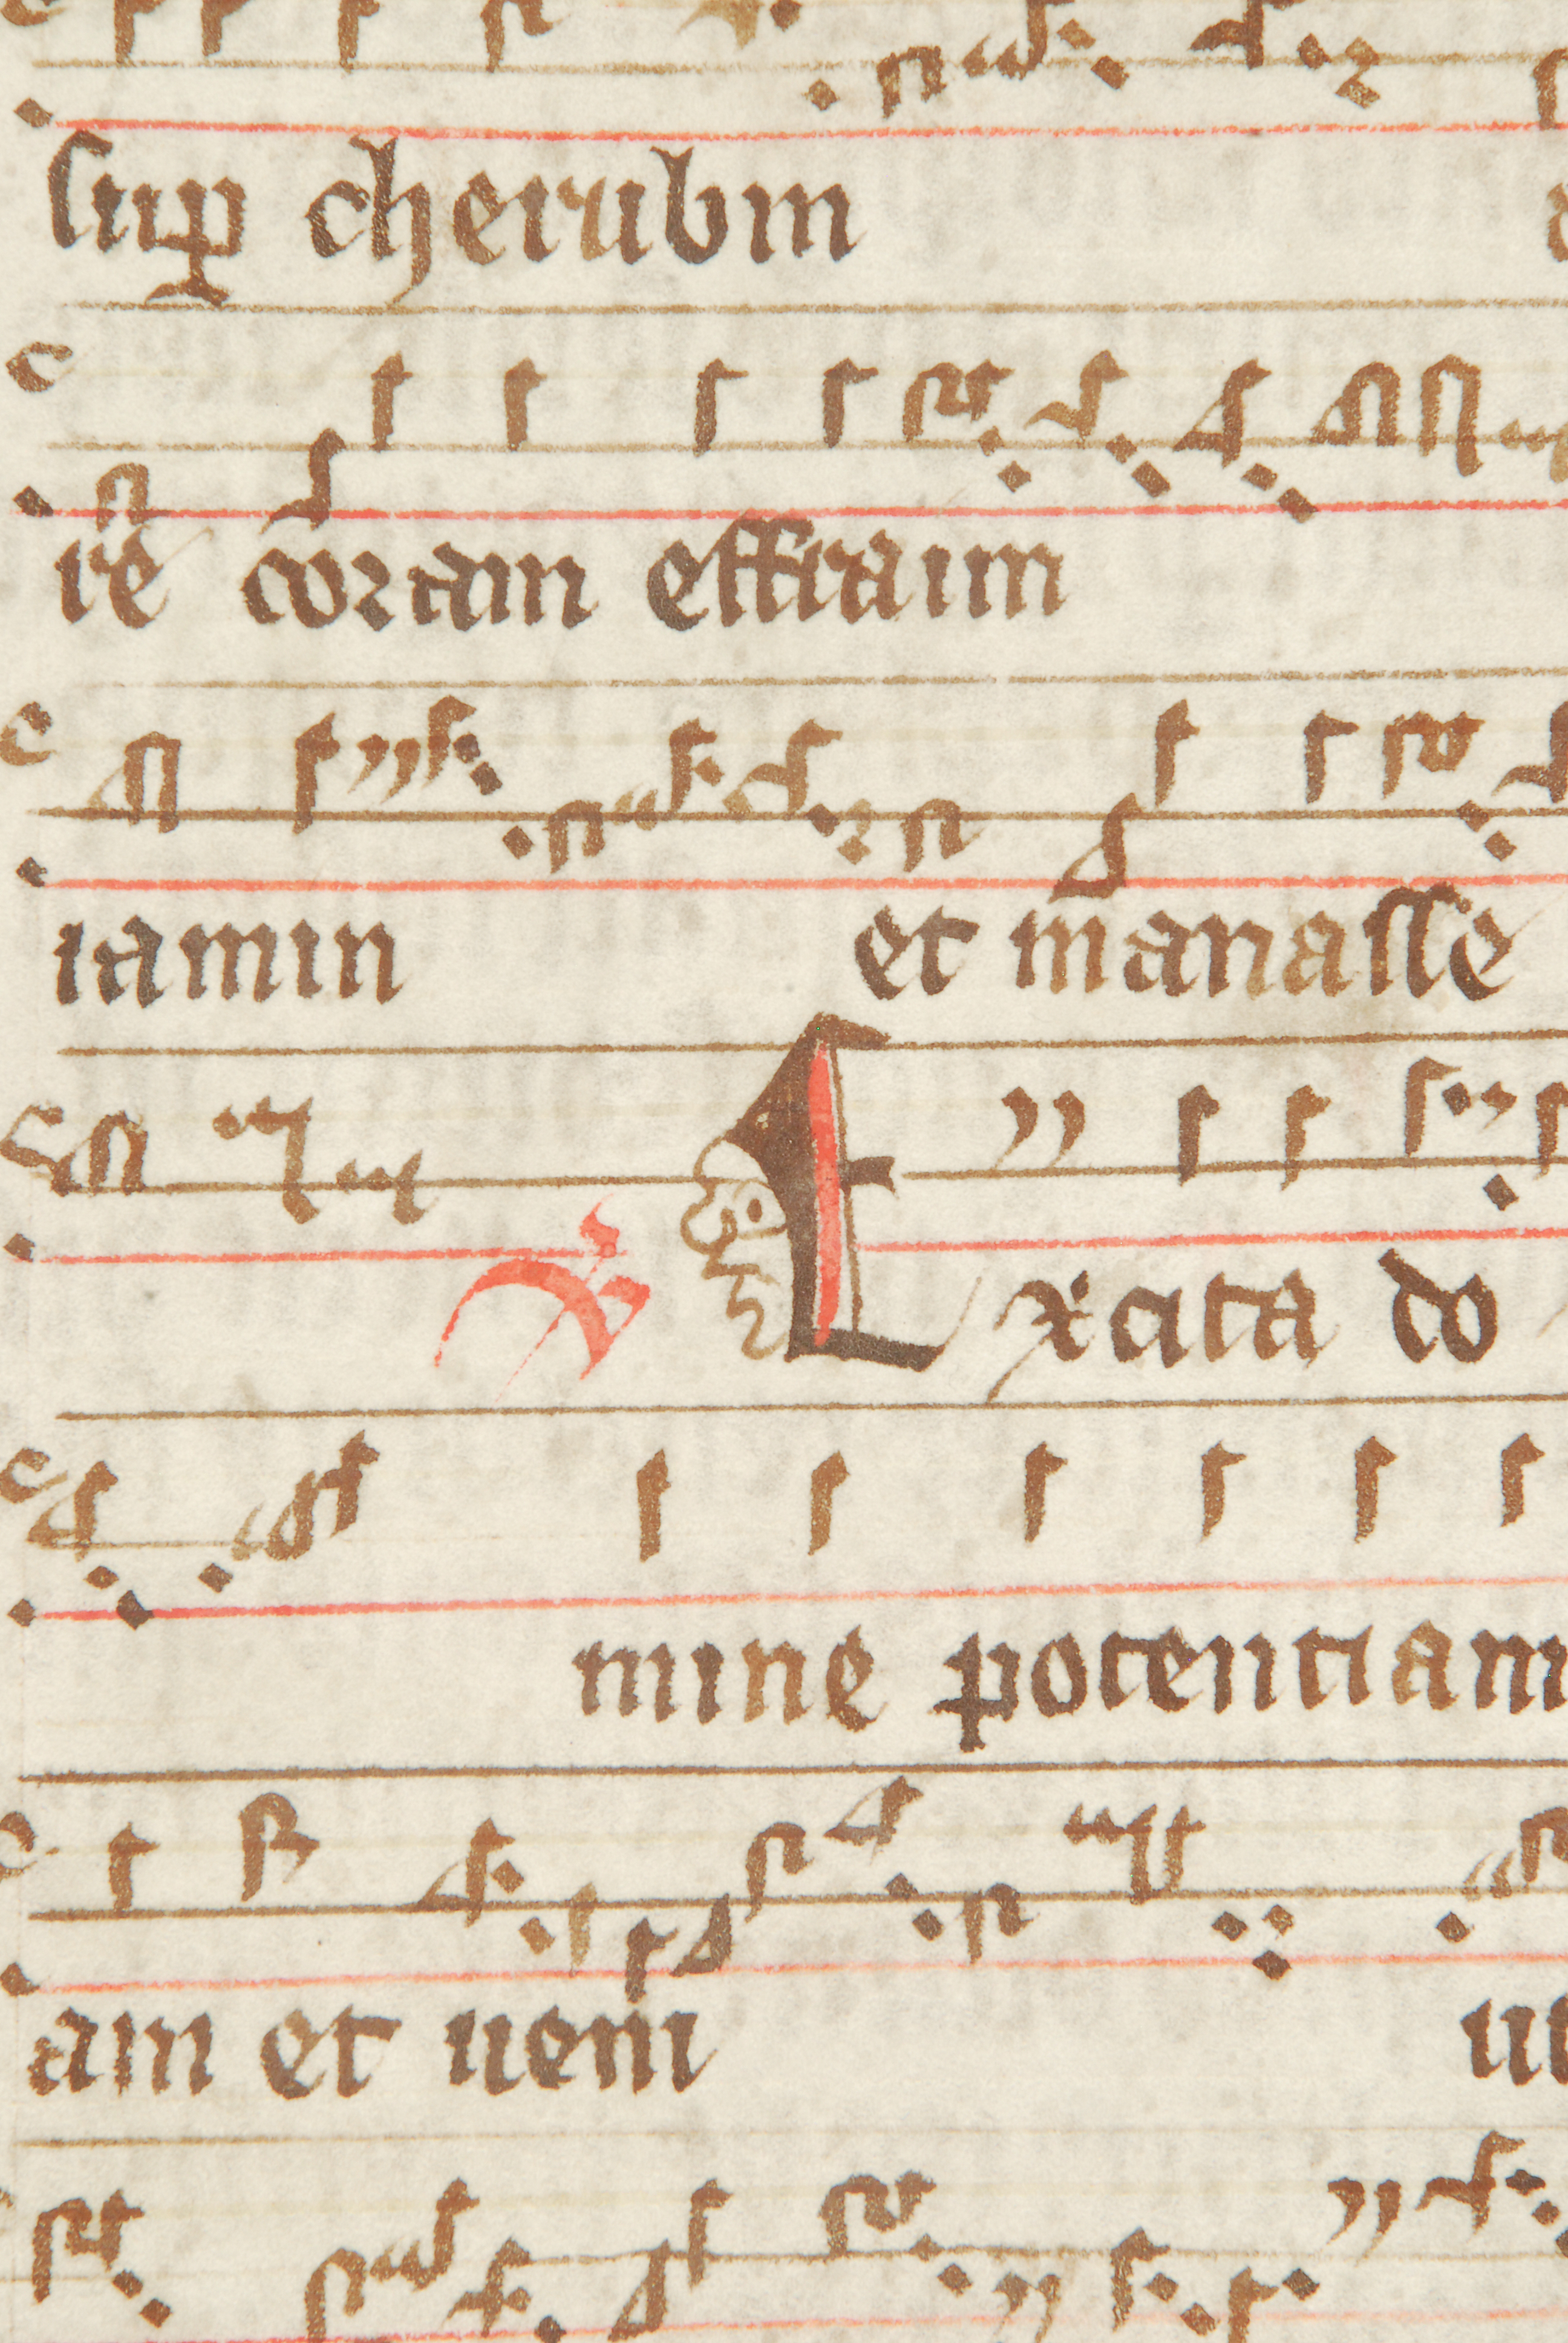 sup cherubin
re coram effraim
iamin et manasse
Excita do
mine potentiam
am et ueni